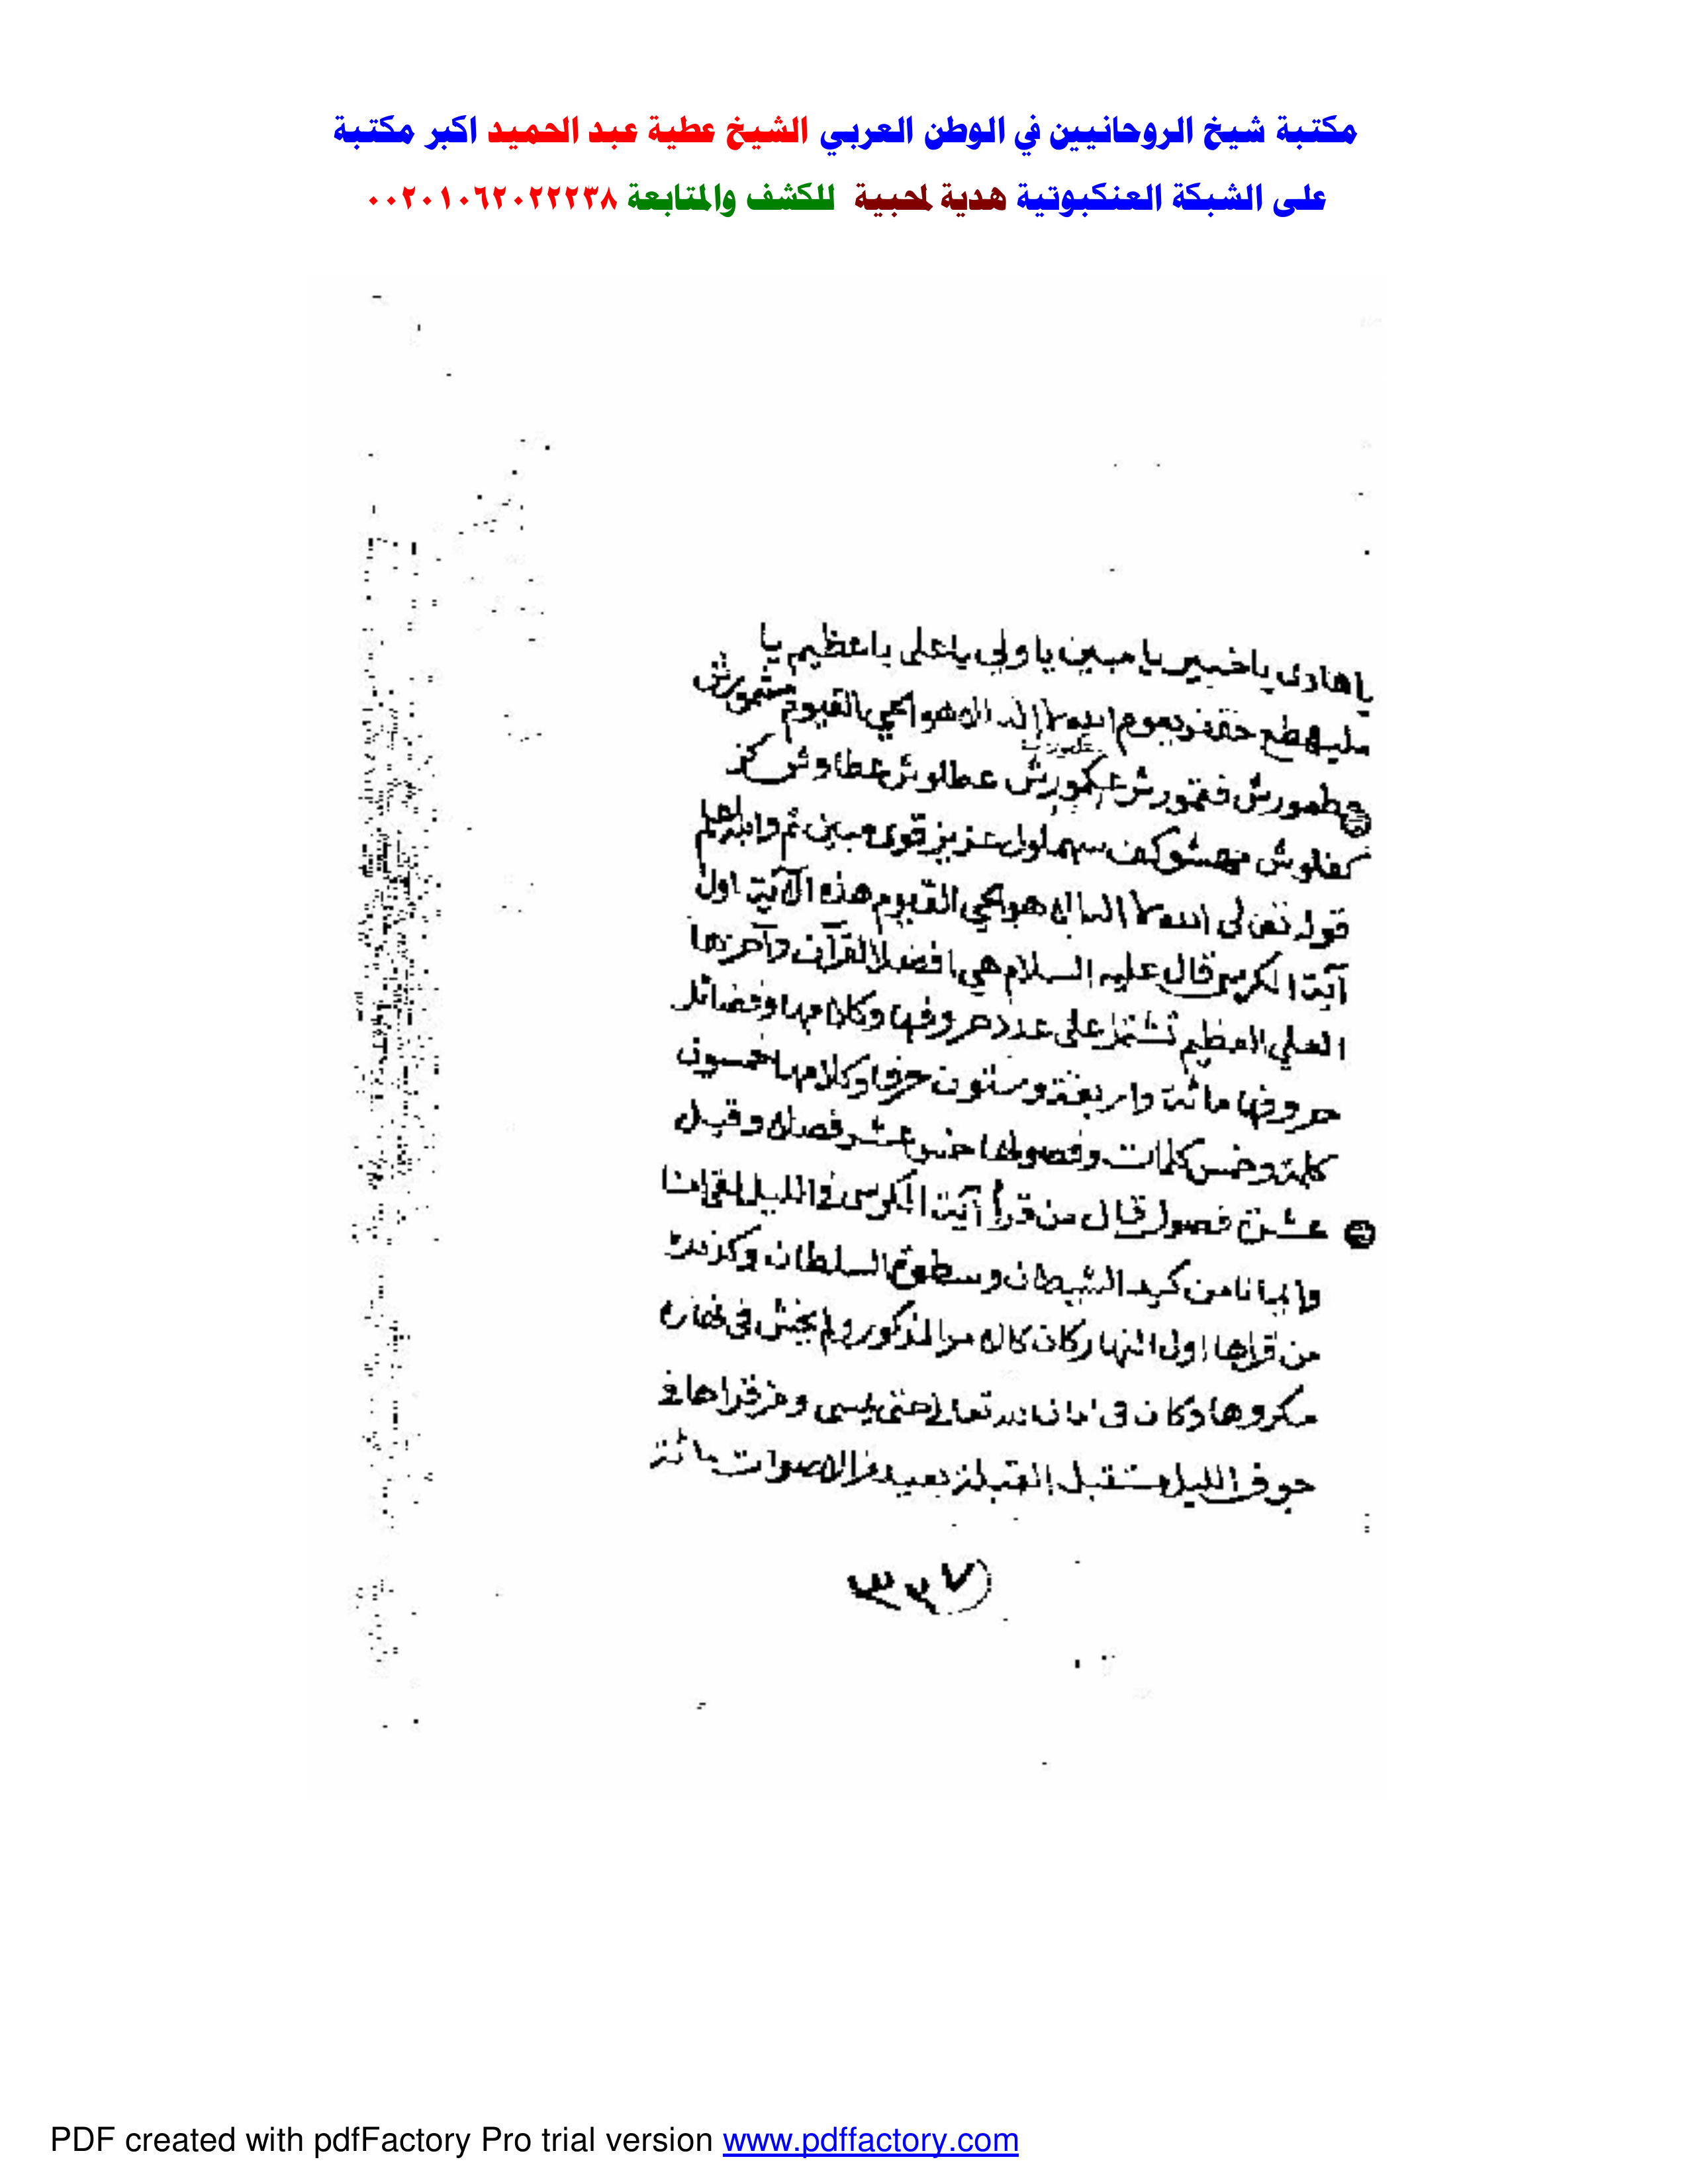 مكتبة شيخ الروحانيين في الوطن العربي الشيخ عطية عبد الحميد اكبر مكتبة
على الشبكة العنكبوتية هدية لمحبية للكشف والمتابعة ٠٠٢٠١٠٦٢٠٢٢٢٣٨
يا هادى يا خبير يا مبين يا ولي يا على يا عظيم يا
الله لا إله إلا هو الحي القيوم
عطلوش
عزيز قوى مبين ثم والله اعلم
قوله تعالى الله لا اله الا هو الحي القيوم هذه الآية اول
آية الكرسي قال عليه السلام هي افضل القرآن وآخرها
العلي العظيم تشتمل على عدد حروفها وكلامها وفضائل
حروفها مائة واربعة وستون حرفا وكلامها خمسون
كلمة وخمس كلمات وفصولها خمس عشر فصلا وقيل
عشرة فصول قال من قرأ آية الكرسى في الليل
من كيد الشيطان وسطوة السلطان وكذلك
من قراها اول النهار كان كالامر المذكور ولم يخش فى نهاره
مكروها وكان فى امان الله تعالى حتى يمسى ومن قراها في
جوف الليل مستقبل القبلة بعيد من الاصوات مائة
٣٣٧
PDF created with pdfFactory Pro trial version www.pdffactory.com